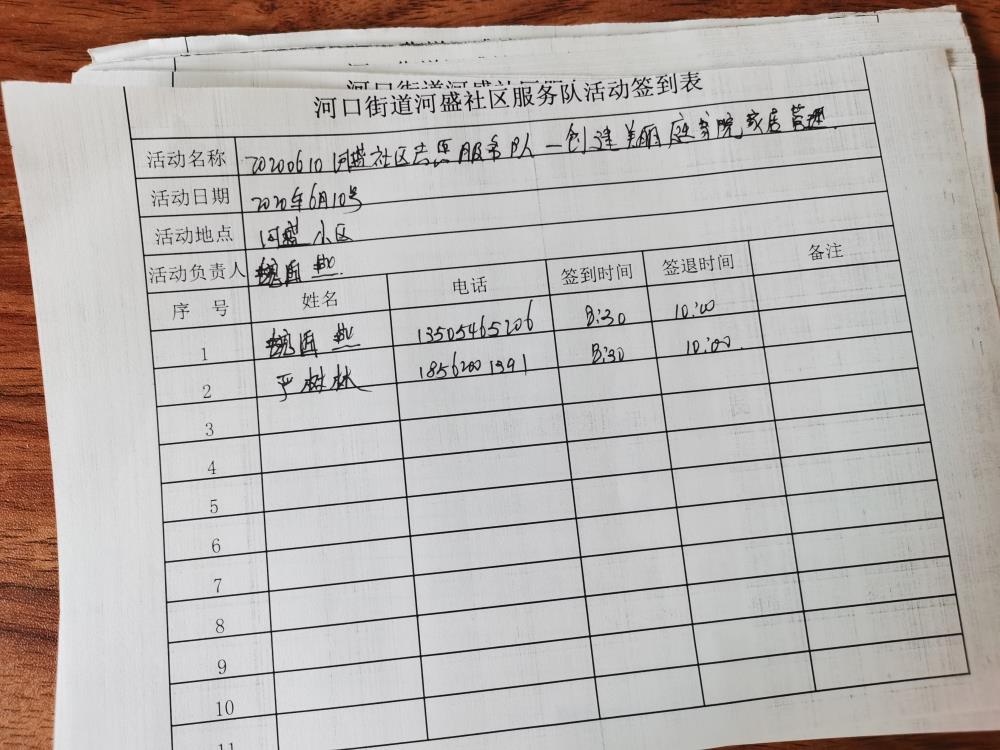 河口街道河盛社区服务队活动签到表
活动名称 20200610河盛社区志愿服务队—创建美丽庭院家居管理
活动日期 2020年6月10号
活动地点 河盛小区
活动负责人
序 号 姓名 电话 签到时间 签退时间 备注
1 13505465206 8:30 10:00
2 严树林 18562001391 8:30 10:00
3
4
5
6
7
8
9
10
11